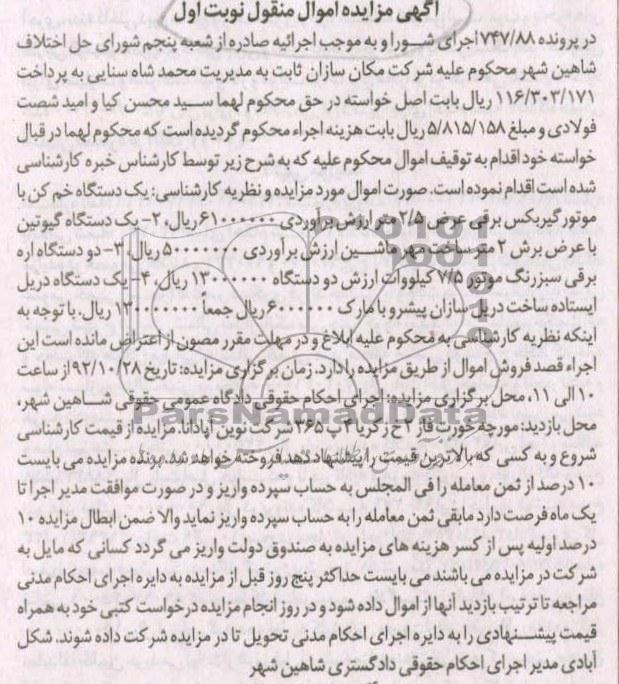 آگهی مزایده اموال منقول نوبت اول
در پرونده ۷۴۷/۸۸ اجرای شورا و به موجب اجرائیه صادره از شعبه پنجم شورای حل اختلاف
شاهین شهر محکوم علیه شرکت مکان سازان ثابت به مدیریت محمد شاه سنایی به پرداخت
۱۱۶/۳۰۳/۱۷۱ ریال بابت اصل خواسته در حق محکوم لهما سید محسن کیا و امید شصت
فولادی و مبلغ ۵/۸۱۵/۱۵۸ ریال بابت هزینه اجراء محکوم گردیده است که محکوم لهما در قبال
خواسته خود اقدام به توقیف اموال محکوم علیه که به شرح زیر توسط کارشناس خبره کارشناسی
شده است اقدام نموده است. صورت اموال مورد مزایده و نظریه کارشناسی: یک دستگاه خم کن با
موتور گیربکس برقی عرض ۲/۵ متر ارزش برآوردی ۶۱۰۰۰۰۰۰ ریال، ۲- یک دستگاه گیوتین
با عرض برش ۲ متر ساخت مهر ماشین ارزش برآوردی ۵۰۰۰۰۰۰۰ ریال، ۳- دو دستگاه اره
برقی سبزرنگ موتور ۷/۵ کیلووات ارزش دو دستگاه ۱۳۰۰۰۰۰۰ ریال، ۴- یک دستگاه دریل
ایستاده ساخت دریل سازان پیشرو با مارک ۶۰۰۰۰۰۰ ریال جمعاً ۱۳۰۰۰۰۰۰۰ ریال. با توجه به
اینکه نظریه کارشناسی به محکوم علیه ابلاغ و در مهلت مقرر مصون از اعتراض مانده است این
اجراء قصد فروش اموال از طریق مزایده را دارد. زمان برگزاری مزایده: تاریخ ۹۲/۱۰/۲۸ از ساعت
۱۰ الی ۱۱، محل برگزاری مزایده: اجرای احکام حقوقی دادگاه عمومی حقوقی شاهین شهر،
محل بازدید: مورچه خورت فاز ۲ خ زکریا ۴ پ ۳۶۵ شرکت نوین آپادانا. مزایده از قیمت کارشناسی
شروع و به کسی که بالاترین قیمت را پیشنهاد دهد فروخته خواهد شد. برنده مزایده می بایست
۱۰ درصد از ثمن معامله را فی المجلس به حساب سپرده واریز و در صورت موافقت مدیر اجرا تا
یک ماه فرصت دارد مابقی ثمن معامله را به حساب سپرده واریز نماید والا ضمن ابطال مزایده ۱۰
درصد اولیه پس از کسر هزینه های مزایده به صندوق دولت واریز می گردد کسانی که مایل به
شرکت در مزایده می باشند می بایست حداکثر پنج روز قبل از مزایده به دایره اجرای احکام مدنی
مراجعه تا ترتیب بازدید آنها از اموال داده شود و در روز انجام مزایده درخواست کتبی خود به همراه
قیمت پیشنهادی را به دایره اجرای احکام مدنی تحویل تا در مزایده شرکت داده شوند. شکل
آبادی مدیر اجرای احکام حقوقی دادگستری شاهین شهر
ParsNamadData